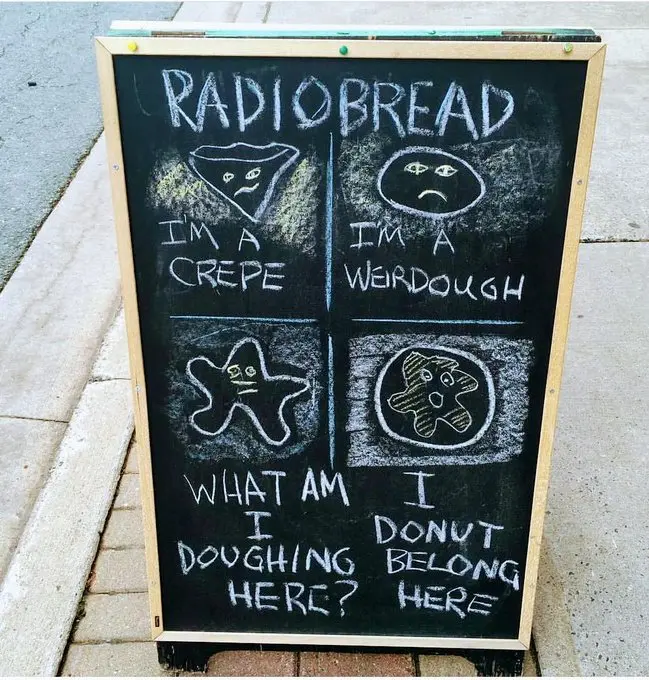 RADIOBREAD
I'M A
CREPE
I'M A
WEIRDOUGH
WHAT AM
I
DOUGHING
HERE?
I
DONUT
BELONG
HERE